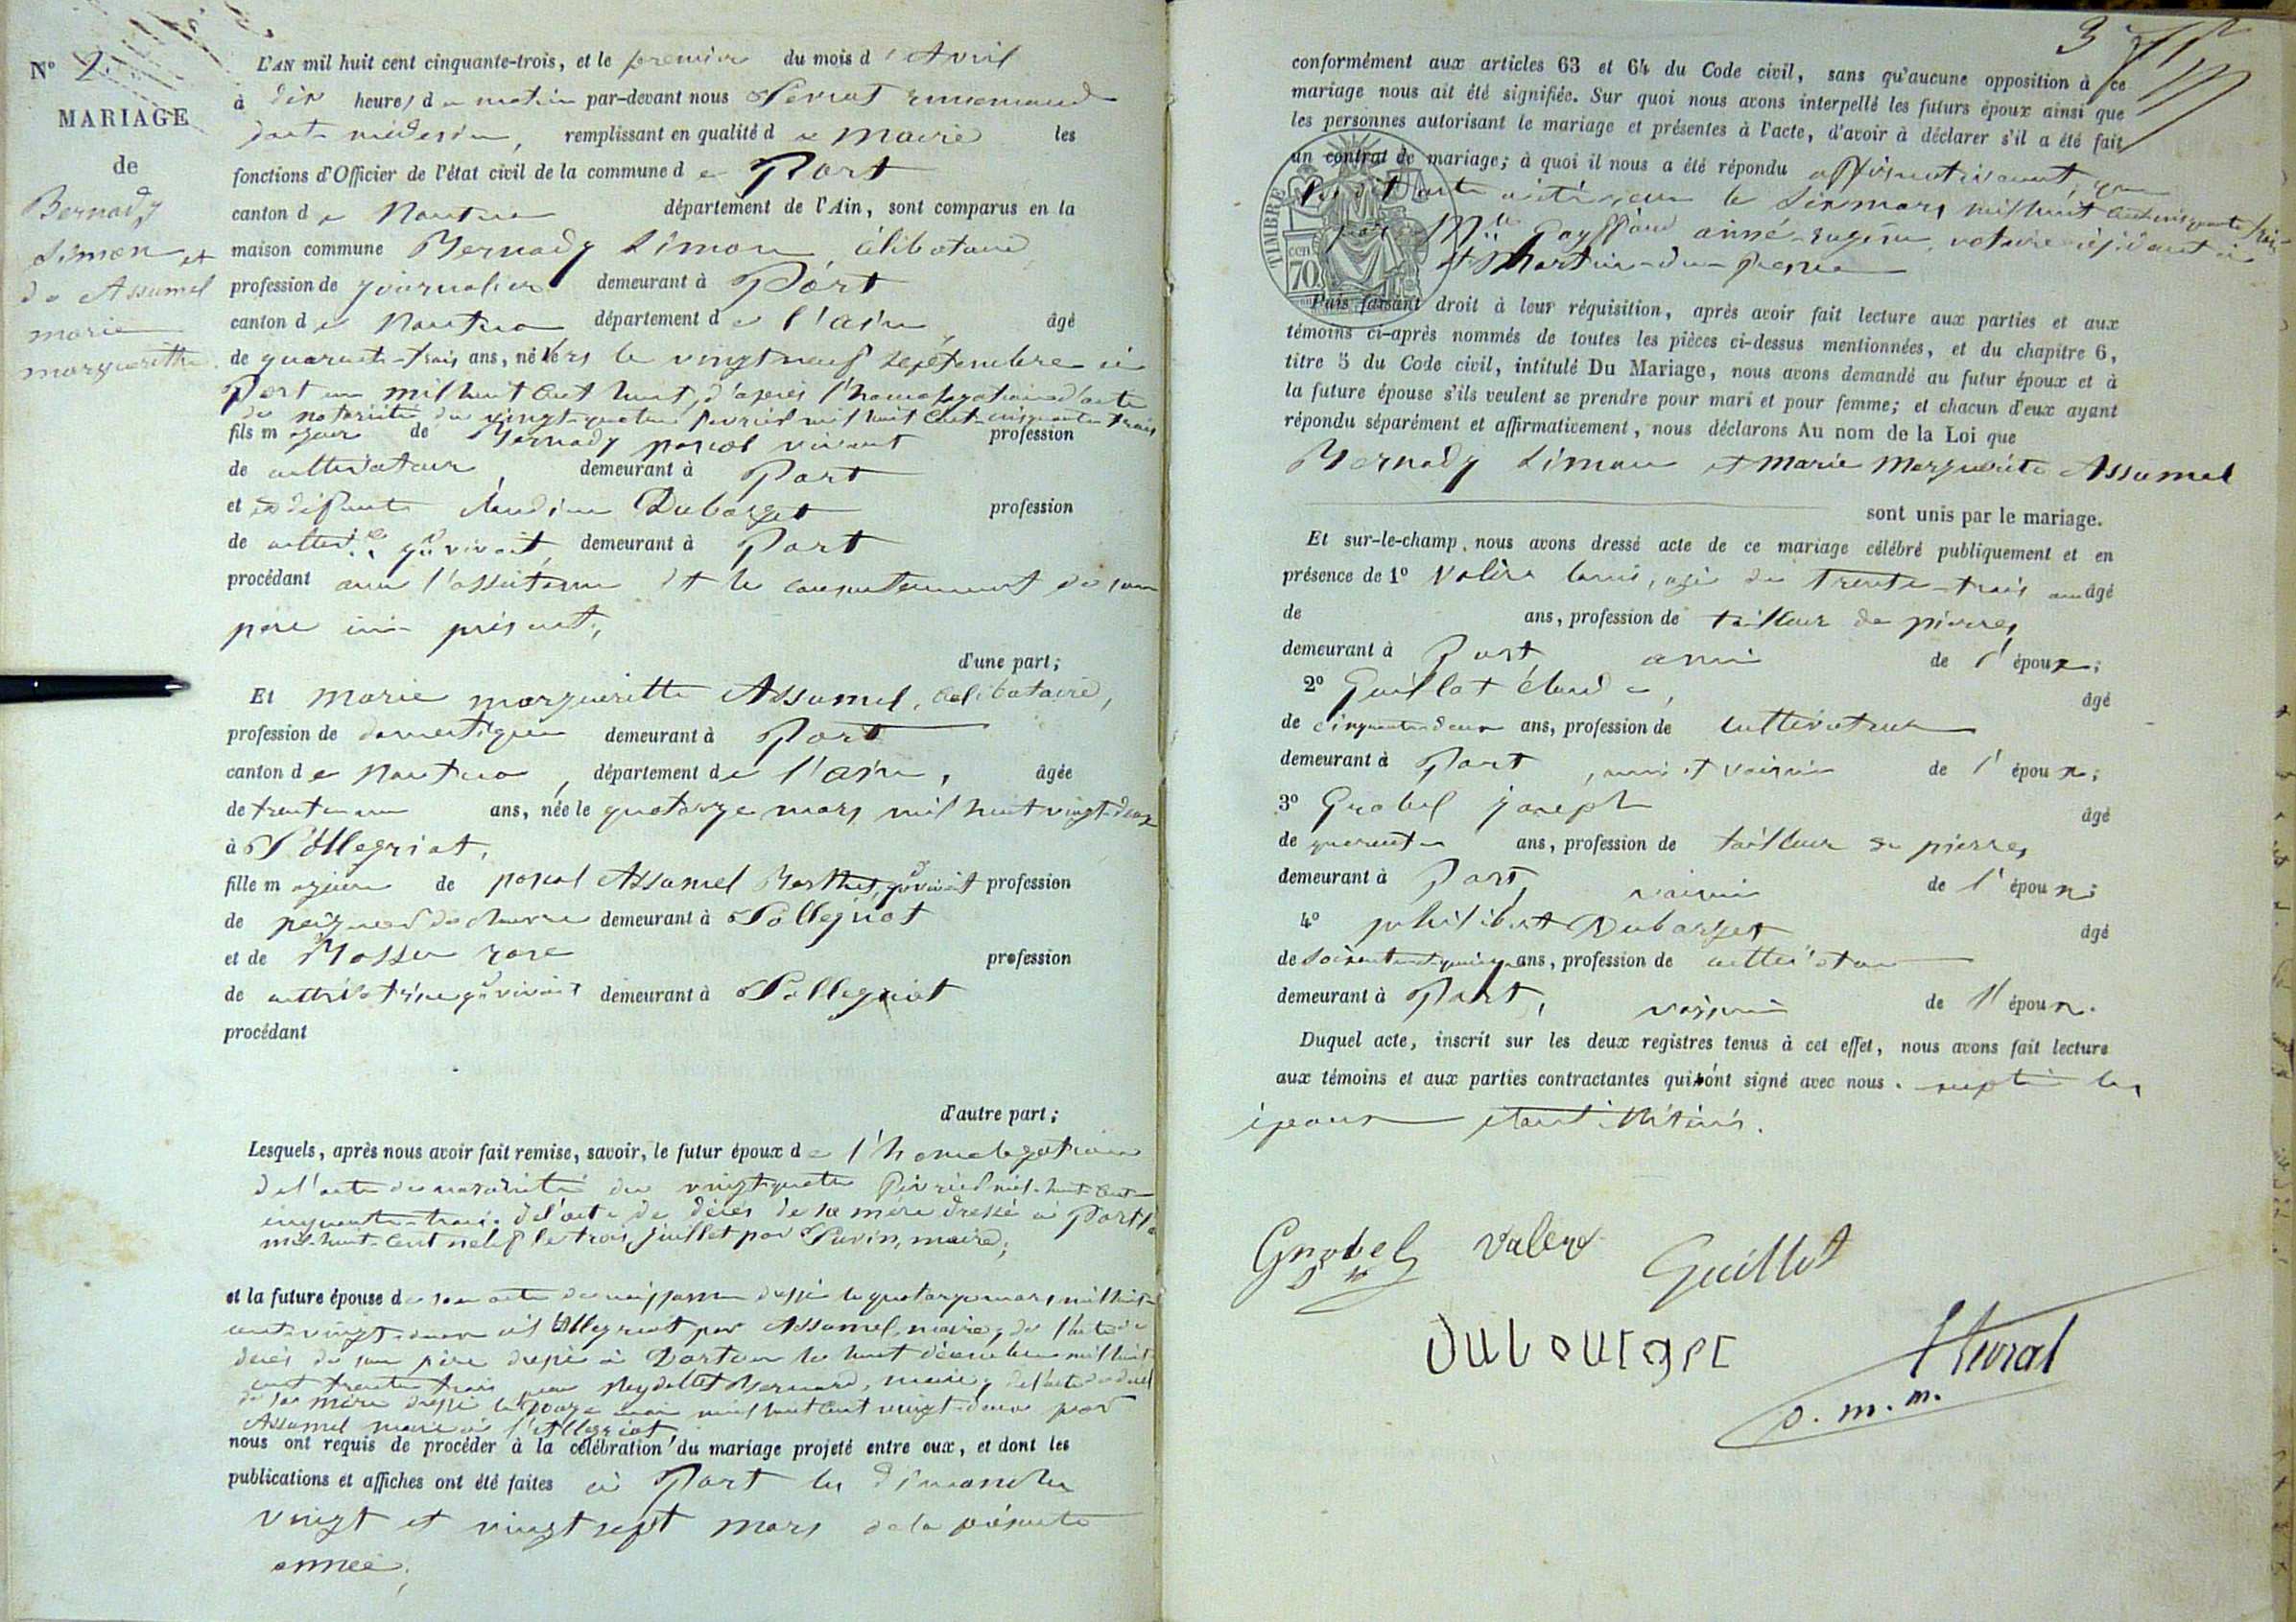 N° 2.
MARIAGE
de
Bernady
Simon et
de Assumel
marie
margueritte.
L'AN mil huit cent cinquante-trois, et le premier du mois d'Avril
à dix heures du matin par-devant nous
remplissant en qualité de Maire les
fonctions d'Officier de l'état civil de la commune de Port
canton de Nantua département de l'Ain, sont comparus en la
maison commune Bernady Simon, célibataire
profession de journalier demeurant à Port
canton de Nantua département de l'ain, âgé
de quarante-trois ans, né vers le vingt neuf septembre à
Port en mil huit cent huit, d'après l'homologation d'acte
de notoriété du vingt-quatre février mil huit cent cinquante trois
fils majeur de Bernady pascal vivant profession
de cultivateur, demeurant à Port
et de défunte claudine Dubarget profession
de demeurant à Port
procédant avec l'assistance et le consentement de son
père ici présent,
d'une part;
Et Marie margueritte Assumel, celibataire,
profession de domestique demeurant à Port
canton de Nantua, département de l'ain, âgée
de trente un ans, née le quatorze mars mil huit vingt-deux
à St Allegriat,
fille majeure de pascal Assumel profession
de peigneur de chanvre demeurant à
et de rose profession
de cultivatrice qd vivait demeurant à
procédant
d'autre part;
Lesquels, après nous avoir fait remise, savoir, le futur époux de l'homologation
de l'acte de notoriété du vingt-quatre février mil-huit-cent-
cinquante-trois. de l'acte de décès de sa mère dressé à Port
mil-huit-cent neuf le trois juillet par maire;
et la future épouse de son acte de naissance dressé le quatorze mars mil huit
cent vingt-deux à Allegriat par Assumel, maire, de l'acte de
décès de son père dressé à Dortan le huit décembre mil huit
cent trente trois par Bernard, maire, de l'acte de décès
de sa mère dressé le mai mil huit cent vingt-deux par
Assumel maire à l'Allegriat
nous ont requis de procéder à la célébration du mariage projeté entre eux, et dont les
publications et affiches ont été faites à Port les dimanches
vingt et vingt sept mars de la présente
année;
3
conformément aux articles 63 et 64 du Code civil, sans qu'aucune opposition à ce
mariage nous ait été signifiée. Sur quoi nous avons interpellé les futurs époux ainsi que
les personnes autorisant le mariage et présentes à l'acte, d'avoir à déclarer s'il a été fait
un contrat de mariage; à quoi il nous a été répondu affirmativement, que
le six mars mil huit cent cinquante trois
par notaire résidant à
St Martin-du-frene
TIMBRE
70
Puis faisant droit à leur réquisition, après avoir fait lecture aux parties et aux
témoins ci-après nommés de toutes les pièces ci-dessus mentionnées, et du chapitre 6,
titre 5 du Code civil, intitulé Du Mariage, nous avons demandé au futur époux et à
la future épouse s'ils veulent se prendre pour mari et pour femme; et chacun d'eux ayant
répondu séparément et affirmativement, nous déclarons Au nom de la Loi que
Bernady Simon et Marie Marguerite Assumel
sont unis par le mariage.
Et sur-le-champ, nous avons dressé acte de ce mariage célébré publiquement et en
présence de 1° louis, agé de trente-trois ans âgé
de ans, profession de tailleur de pierres
demeurant à Port ami de l'époux;
2° Guillot claude, âgé
de cinquante deux ans, profession de cultivateur
demeurant à Port, ami et voisin de l'époux;
3° Grobel joseph âgé
de quarante ans, profession de tailleur de pierres
demeurant à Port, voisin de l'époux;
4° philibert Dubarget âgé
de ans, profession de cultivateur
demeurant à Port, voisin de l'époux.
Duquel acte, inscrit sur les deux registres tenus à cet effet, nous avons fait lecture
aux témoins et aux parties contractantes qui ont signé avec nous. excepté les
époux étant illétérés.
Grobel Valery Guillot
Dubourger
d. m. m.